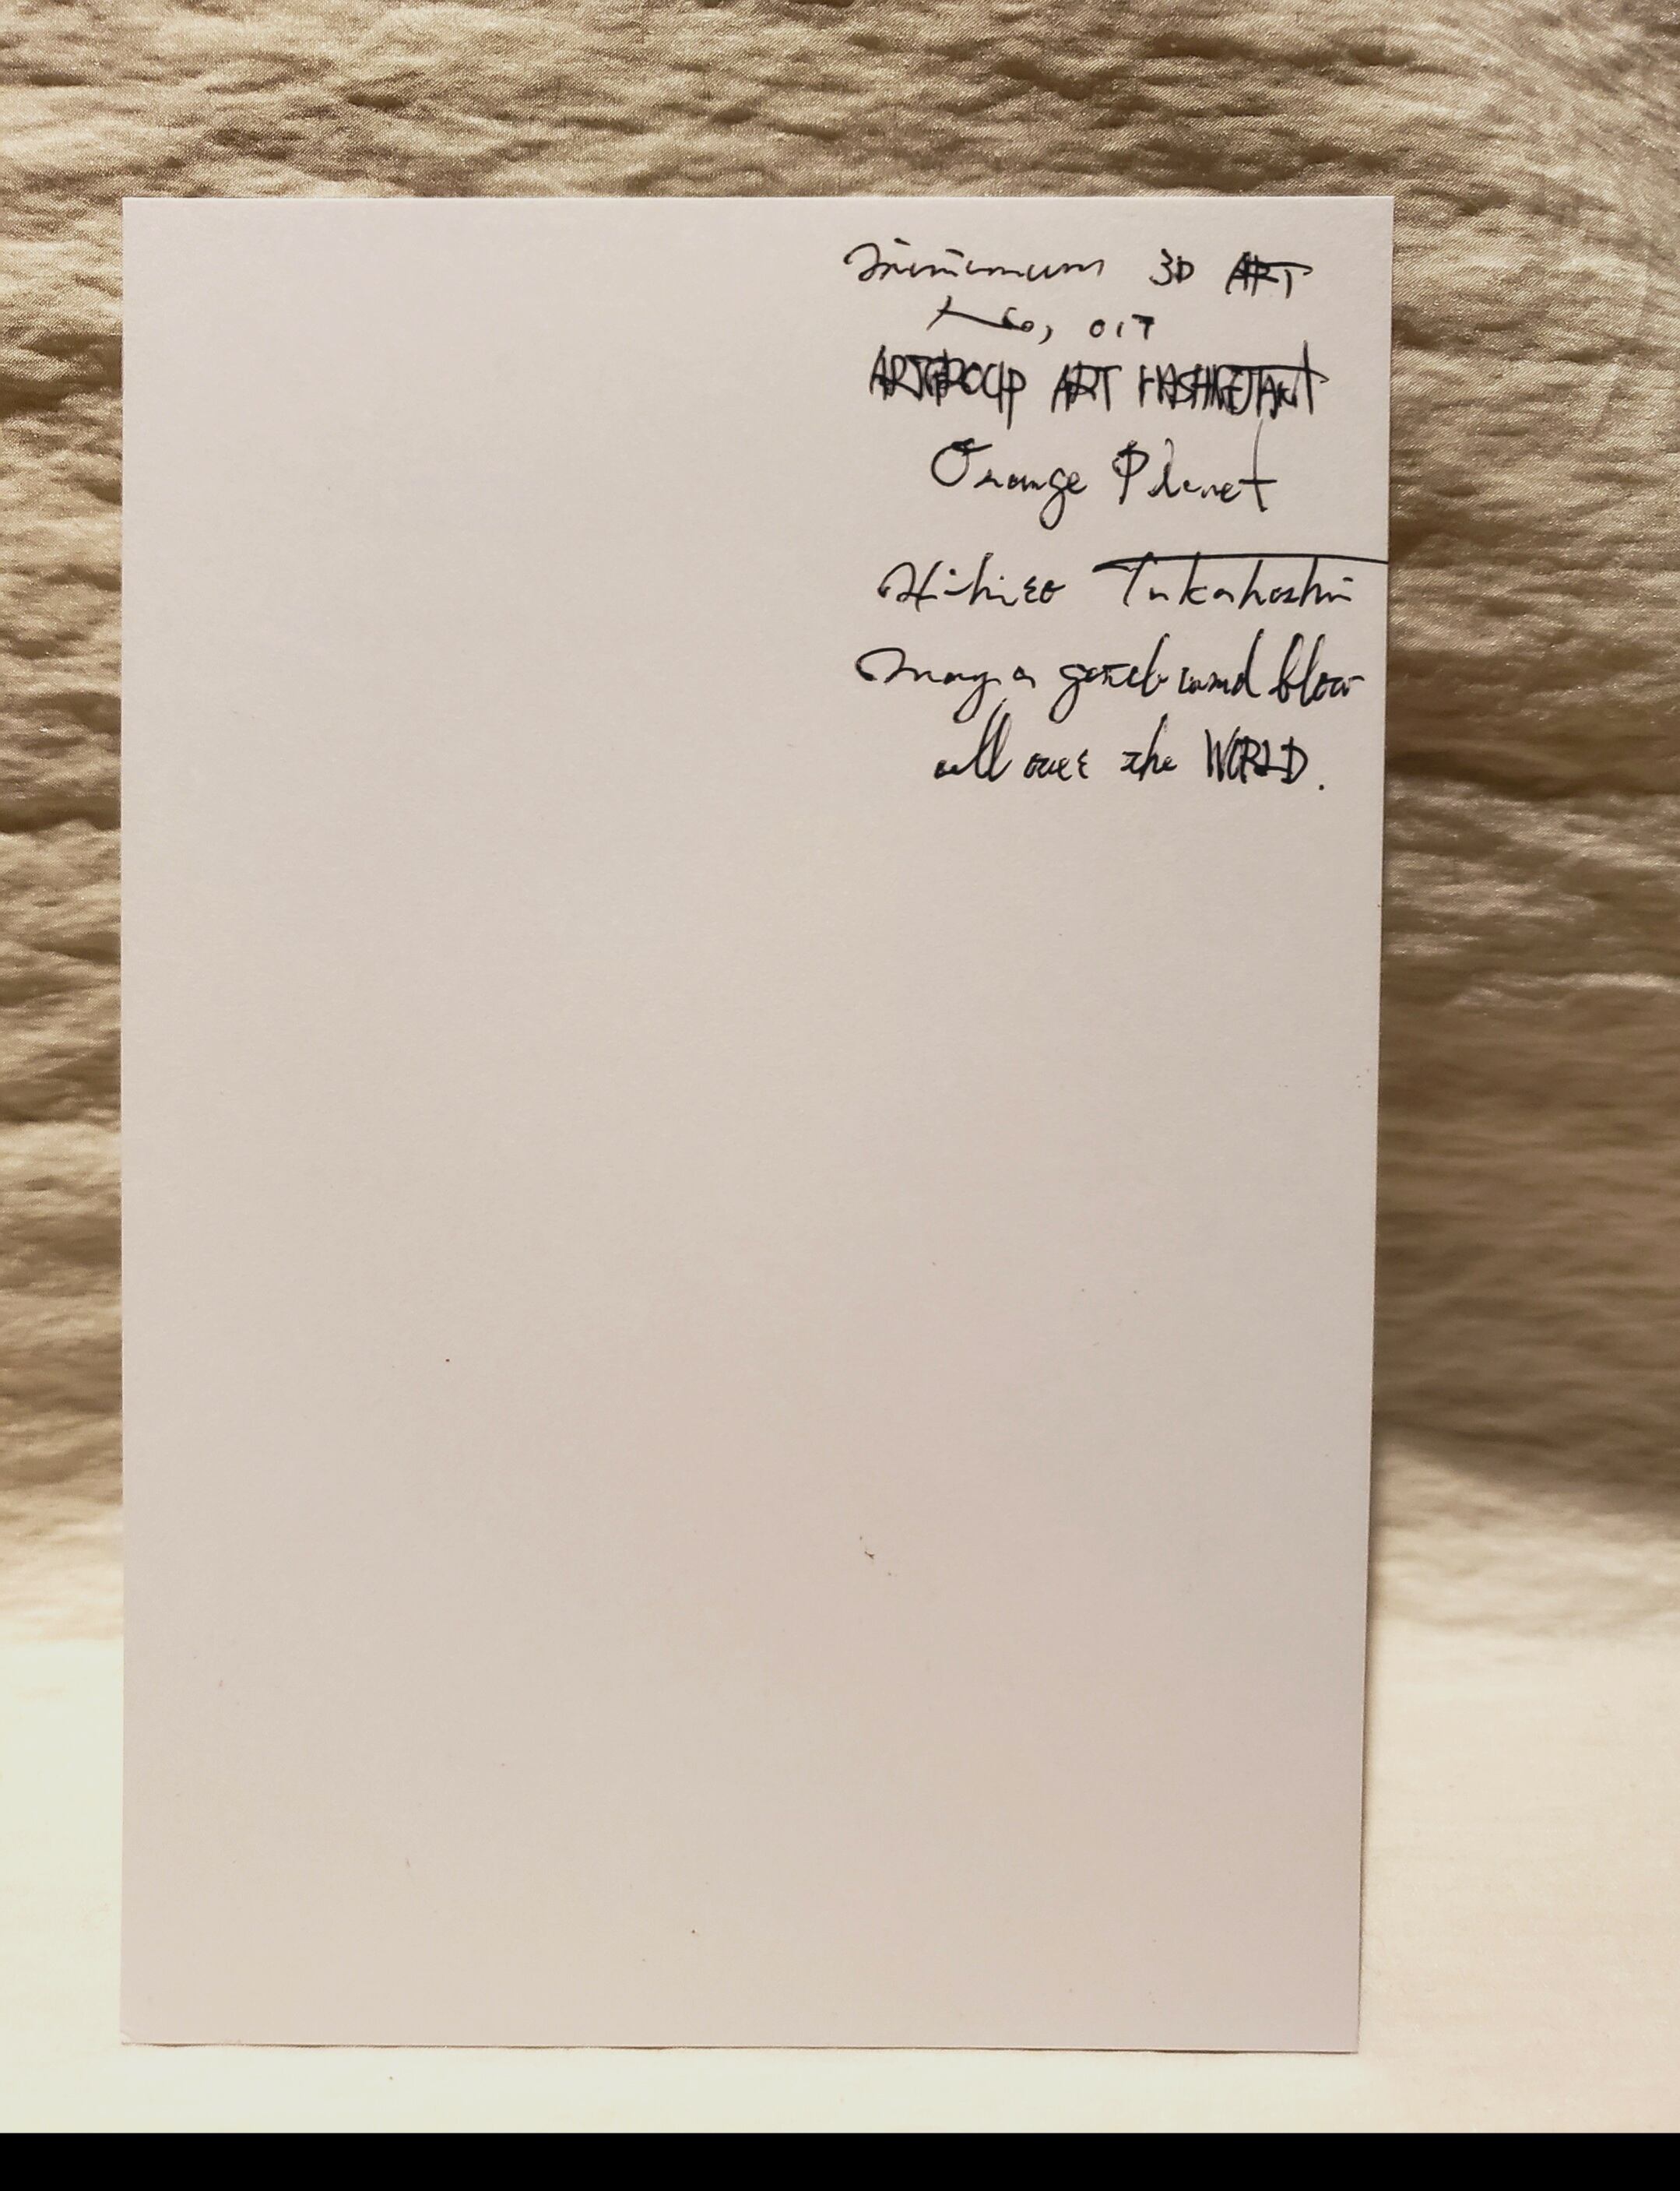 Minimum 3D ART
No, 017
ARTGROUP ART
Orange Planet
Takahashi
May a gentle wind blow
all over the WORLD.